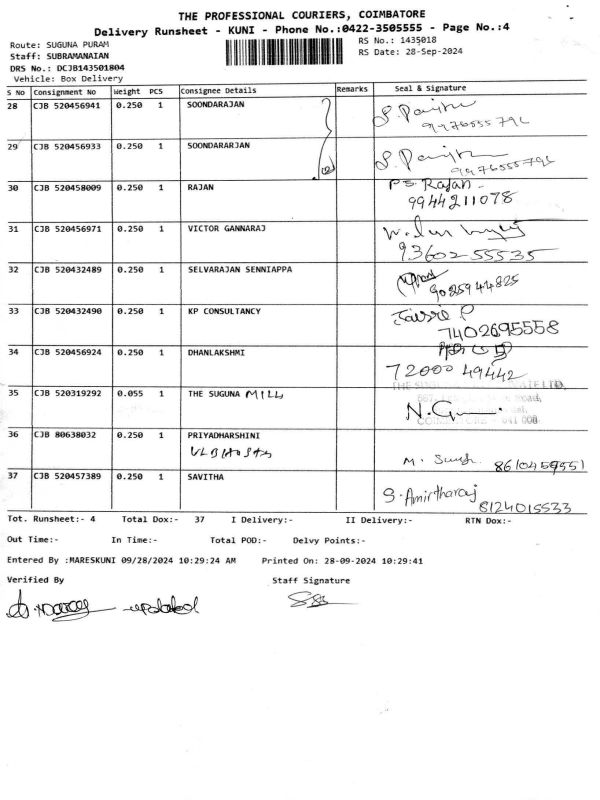 THE PROFESSIONAL COURIERS, COIMBATORE
Delivery Runsheet - KUNI - Phone No.:0422-3505555 - Page No.:4
Route: SUGUNA PURAM
RS No.: 1435018
Staff: SUBRAMANAIAN
RS Date: 28-Sep-2024
DRS No.: DCJB143501804
Vehicle: Box Delivery
S No Consignment No Weight PCS Consignee Details Remarks Seal & Signature
28 CJB 520456941 0.250 1 SOONDARAJAN
9976555796
29 CJB 520456933 0.250 1 SOONDARARJAN
9976555796
30 CJB 520458009 0.250 1 RAJAN P.S. Rajan
9944211078
31 CJB 520456971 0.250 1 VICTOR GANNARAJ
93602 55535
32 CJB 520432489 0.250 1 SELVARAJAN SENNIAPPA
9025944825
33 CJB 520432490 0.250 1 KP CONSULTANCY
7402695558
34 CJB 520456924 0.250 1 DHANLAKSHMI
72000 49442
35 CJB 520319292 0.055 1 THE SUGUNA MILL
N.
36 CJB 80638032 0.250 1 PRIYADHARSHINI
M. 8610459551
37 CJB 520457389 0.250 1 SAVITHA S. Amirtharaj
8124015533
Tot. Runsheet:- 4 Total Dox:- 37 I Delivery:- II Delivery:- RTN Dox:-
Out Time:- In Time:- Total POD:- Delvy Points:-
Entered By :MARESKUNI 09/28/2024 10:29:24 AM Printed On: 28-09-2024 10:29:41
Verified By Staff Signature
updated